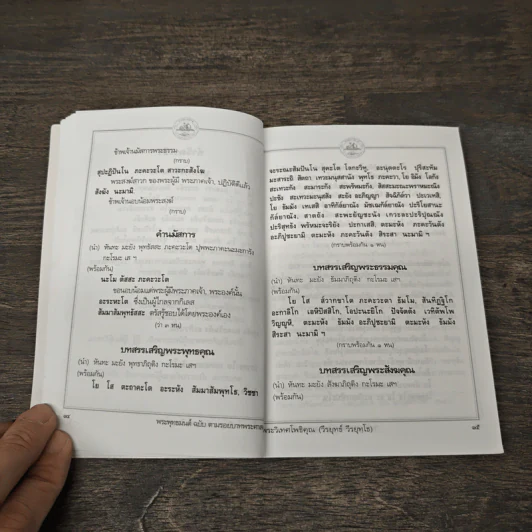 ข้าพเจ้านมัสการพระธรรม
(กราบ)
สุปะฏิปันโน ภะคะวะโต สาวะกะสังโฆ
พระสงฆ์สาวก ของพระผู้มี พระภาคเจ้า, ปฏิบัติดีแล้ว
สังฆัง นะมามิ
ข้าพเจ้านอบน้อมพระสงฆ์
(กราบ)
คำนมัสการ
(นำ) หันทะ มะยัง พุทธัสสะ ภะคะวะโต ปุพพะภาคะนะมะการัง
กะโรมะ เส ฯ
(พร้อมกัน)
นะโม ตัสสะ ภะคะวะโต
ขอนอบน้อมแด่พระผู้มีพระภาคเจ้า, พระองค์นั้น
อะระหะโต ซึ่งเป็นผู้ไกลจากกิเลส
สัมมาสัมพุทธัสสะ ตรัสรู้ชอบได้โดยพระองค์เอง
(ว่า ๓ หน)
บทสรรเสริญพระพุทธคุณ
(นำ) หันทะ มะยัง พุทธาภิถุติง กะโรมะ เส ฯ
(พร้อมกัน)
โย โส ตะถาคะโต อะระหัง สัมมาสัมพุทโธ, วิชชา
๘๔
พระพุทธมนต์ ฉบับ ตามรอยบาทพระศาสดา
จะระณะสัมปันโน สุคะโต โลกะวิทู, อะนุตตะโร ปุริสะทัม
มะสาระถิ สัตถา เทวะมะนุสสานัง พุทโธ ภะคะวา, โย อิมัง โลกัง
สะเทวะกัง สะมาระกัง สะพรัหมะกัง, สัสสะมะณะพราหมะณิง
ปะชัง สะเทวะมะนุสสัง สะยัง อะภิญญา สัจฉิกัต๎วา ปะเวเทสิ,
โย ธัมมัง เทเสสิ อาทิกัล๎ยาณัง มัชเฌกัล๎ยาณัง ปะริโยสานะ
กัล๎ยาณัง, สาตถัง สะพ๎ยัญชะนัง เกวะละปะริปุณณัง
ปะริสุทธัง พรัหมะจะริยัง ปะกาเสสิ, ตะมะหัง ภะคะวันตัง
อะภิปูชะยามิ ตะมะหัง ภะคะวันตัง สิระสา นะมามิ ฯ
(กราบพร้อมกัน ๑ หน)
บทสรรเสริญพระธรรมคุณ
(นำ) หันทะ มะยัง ธัมมาภิถุติง กะโรมะ เส ฯ
(พร้อมกัน)
โย โส ส๎วากขาโต ภะคะวะตา ธัมโม, สันทิฏฐิโก
อะกาลิโก เอหิปัสสิโก, โอปะนะยิโก ปัจจัตตัง เวทิตัพโพ
วิญญูหิ, ตะมะหัง ธัมมัง อะภิปูชะยามิ ตะมะหัง ธัมมัง
สิระสา นะมามิ ฯ
(กราบพร้อมกัน ๑ หน)
บทสรรเสริญพระสังฆคุณ
(นำ) หันทะ มะยัง สังฆาภิถุติง กะโรมะ เส ฯ
(พร้อมกัน)
พระวิเทศโพธิคุณ (วีรยุทธ์ วีรยุทโธ)
๘๕